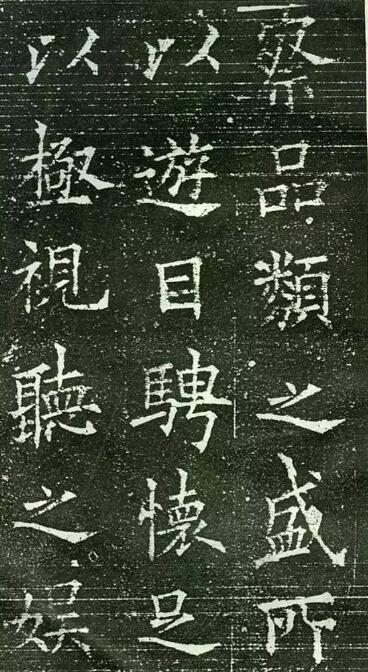 察品類之盛所
以遊目騁懷足
以極視聽之娛